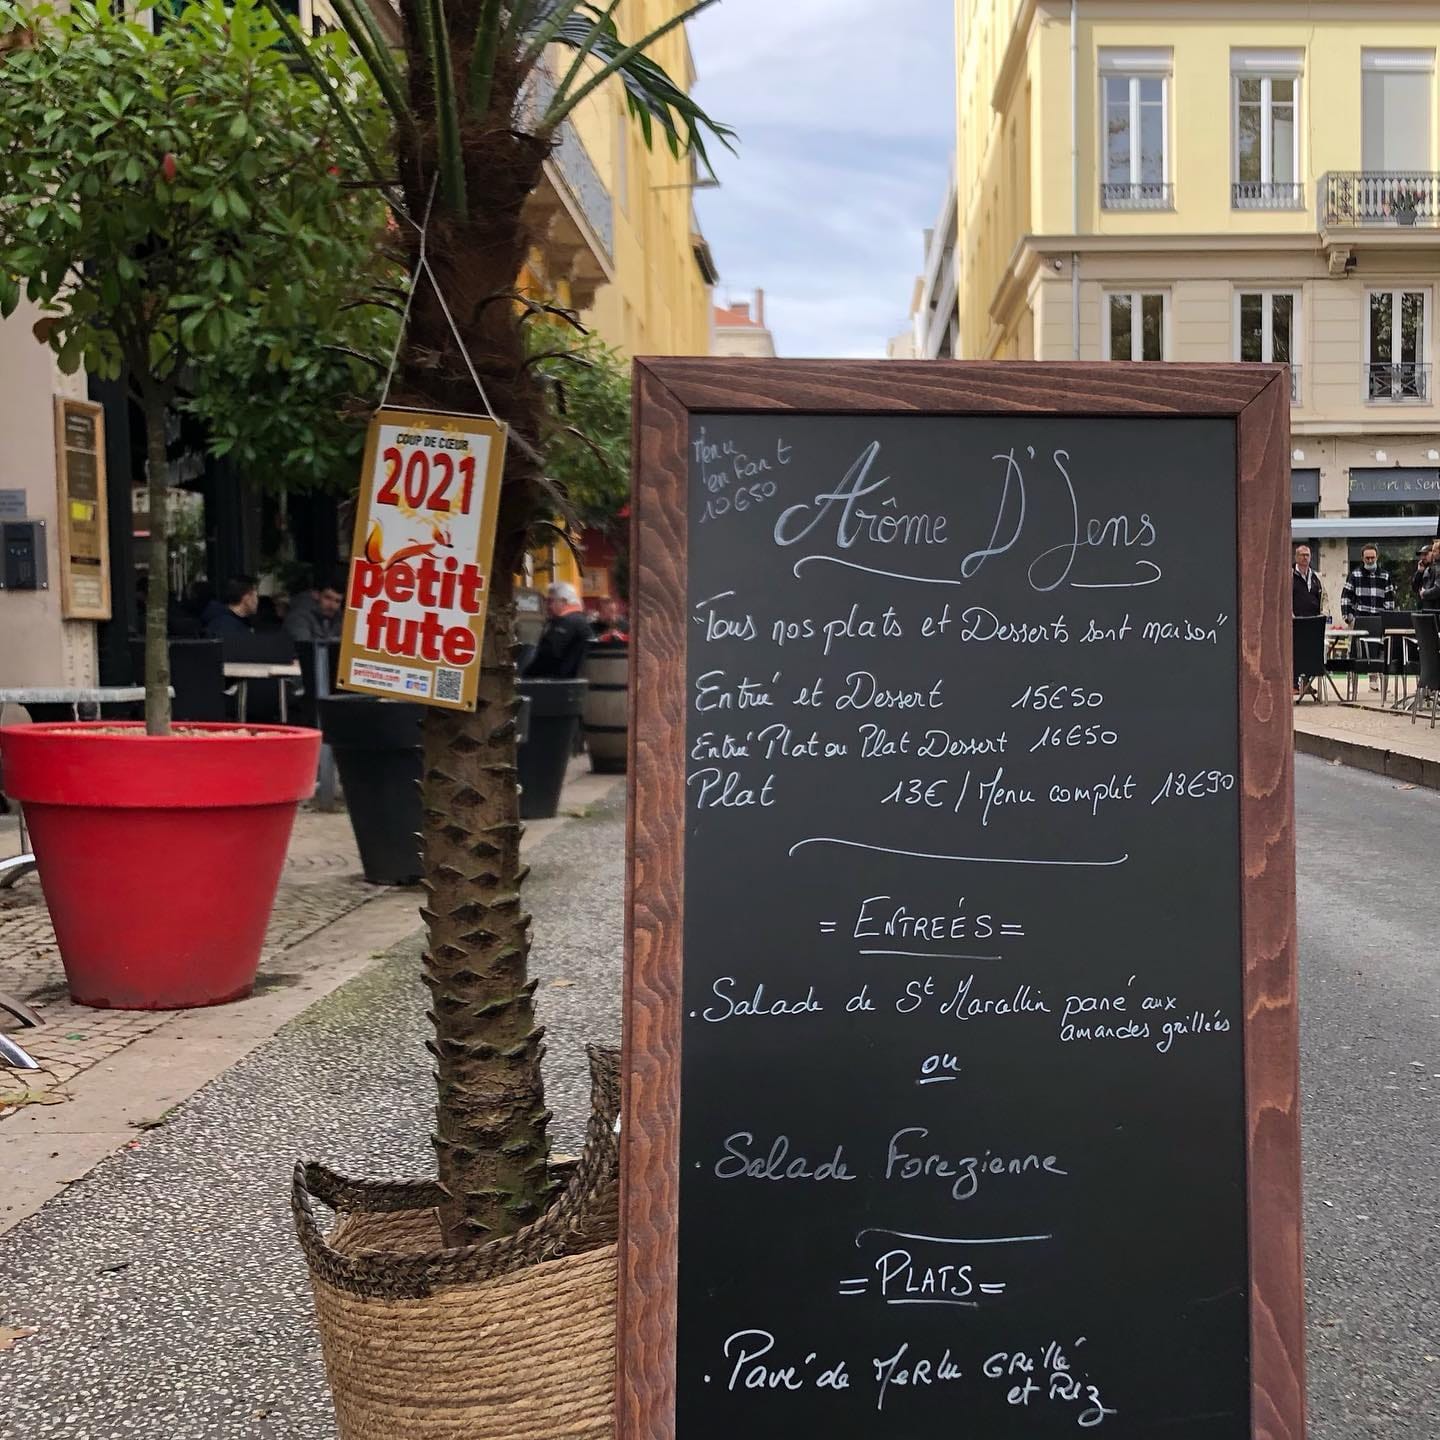 COUP DE CŒUR
2021
petit
fute
petitfute.com
Menu
enfant
10€50
Arôme D'Sens
"Tous nos plats et Desserts sont maison"
Entrée et Dessert 15€50
Entrée Plat ou Plat Dessert 16€50
Plat 13€ / Menu complet 18€90
= ENTREÉS =
. Salade de St Marcellin pané aux
amandes grillées
ou
. Salade Forezienne
= PLATS =
. Pavé de Merlu Grillé
et Riz